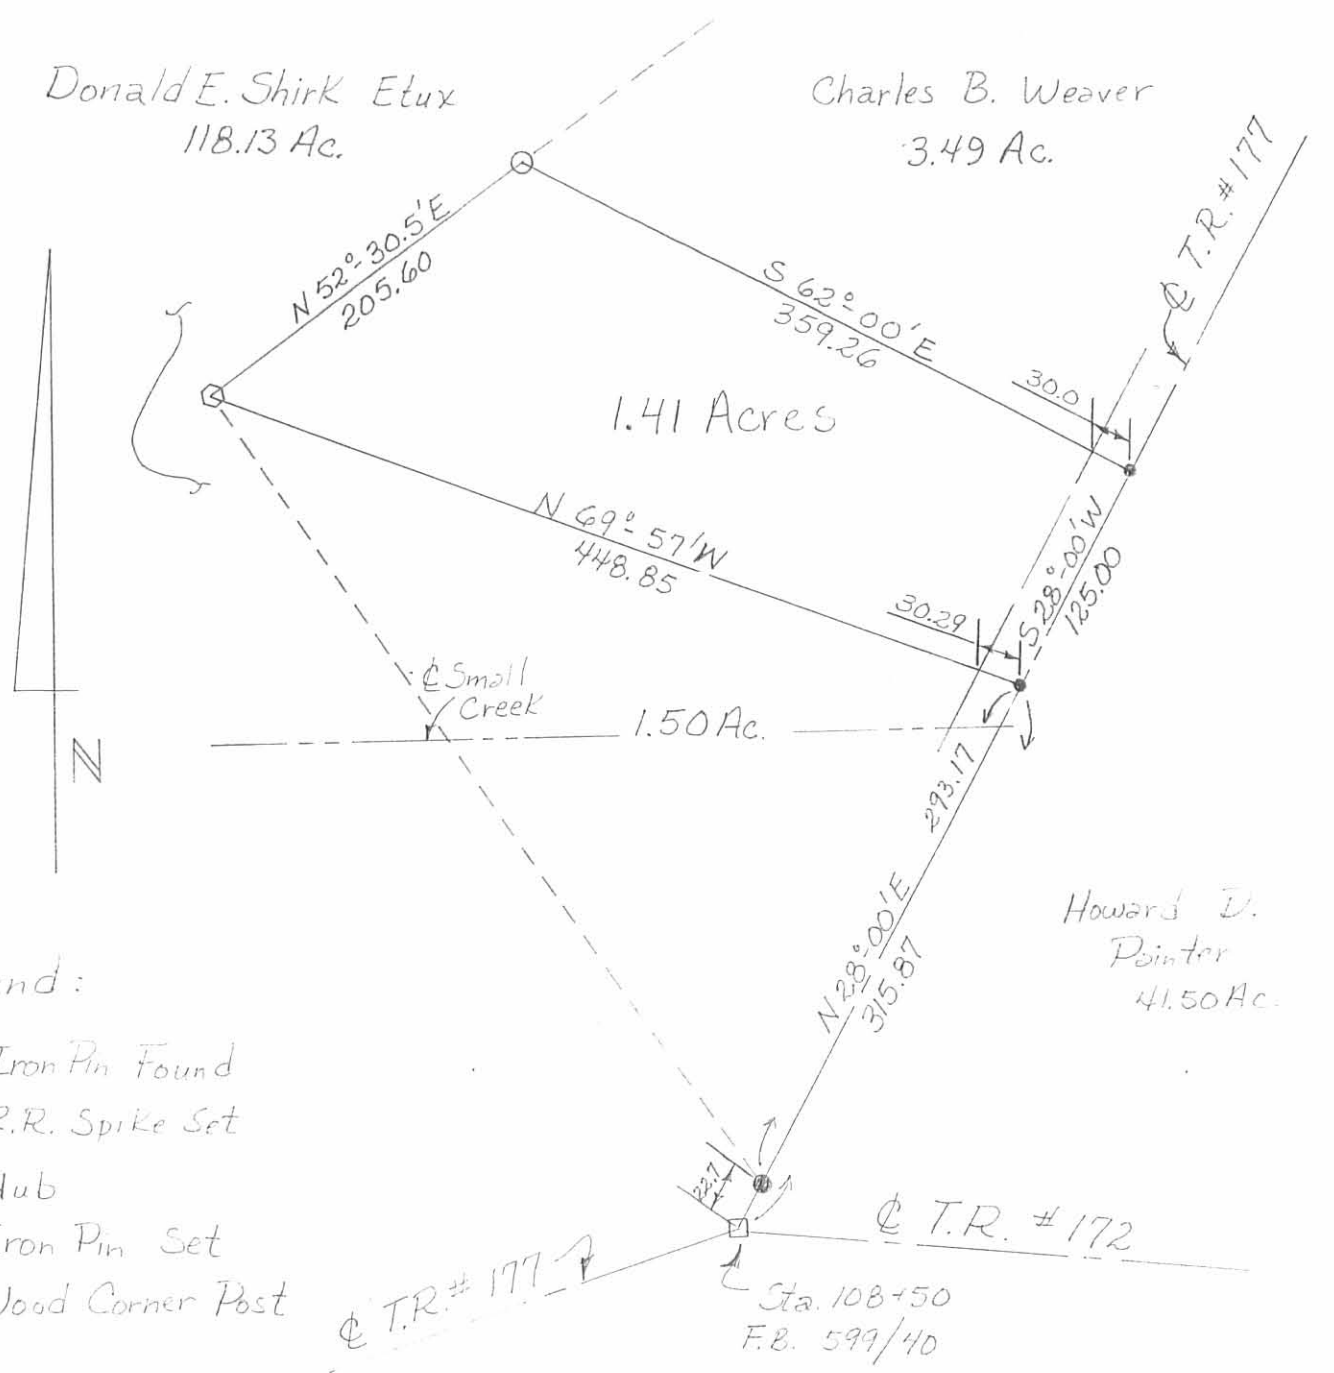 Donald E. Shirk Etux
118.13 Ac.
Charles B. Weaver
3.49 Ac.
℄ T.R. #177
N 52°-30.5'E
205.60
S 62°-00'E
359.26
30.0
1.41 Acres
N 69°-57'W
448.85
30.29
S 28°-00'W
125.00
℄ Small
Creek
1.50 Ac.
N
293.17
N 28°-00'E
315.87
Howard D.
Painter
41.50 Ac.
nd:
Iron Pin Found
R.R. Spike Set
Hub
Iron Pin Set
Wood Corner Post
22.7
℄ T.R. #172
℄ T.R. #177
Sta. 108+50
F.B. 599/40